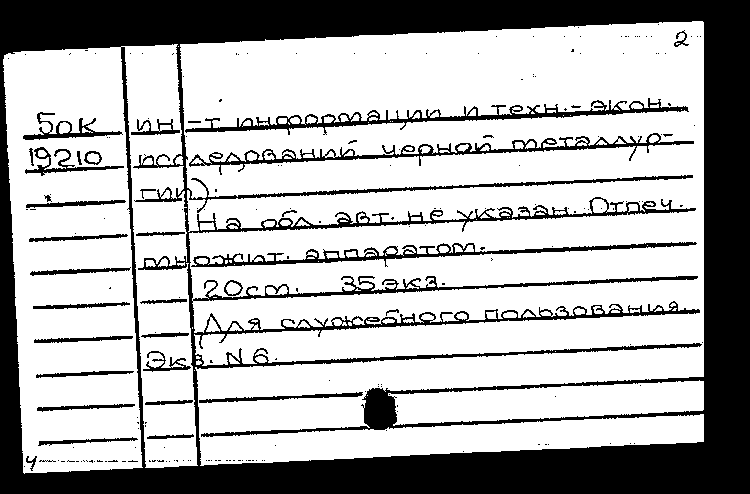 2
5ок ин-т информации и техн.-экон.
19210 исследований черной металлур-
гии).
На обл. авт. не указан. Отпеч.
множит. аппаратом.
20см. 35 экз.
Для служебного пользования.
Экз. N 6.
4